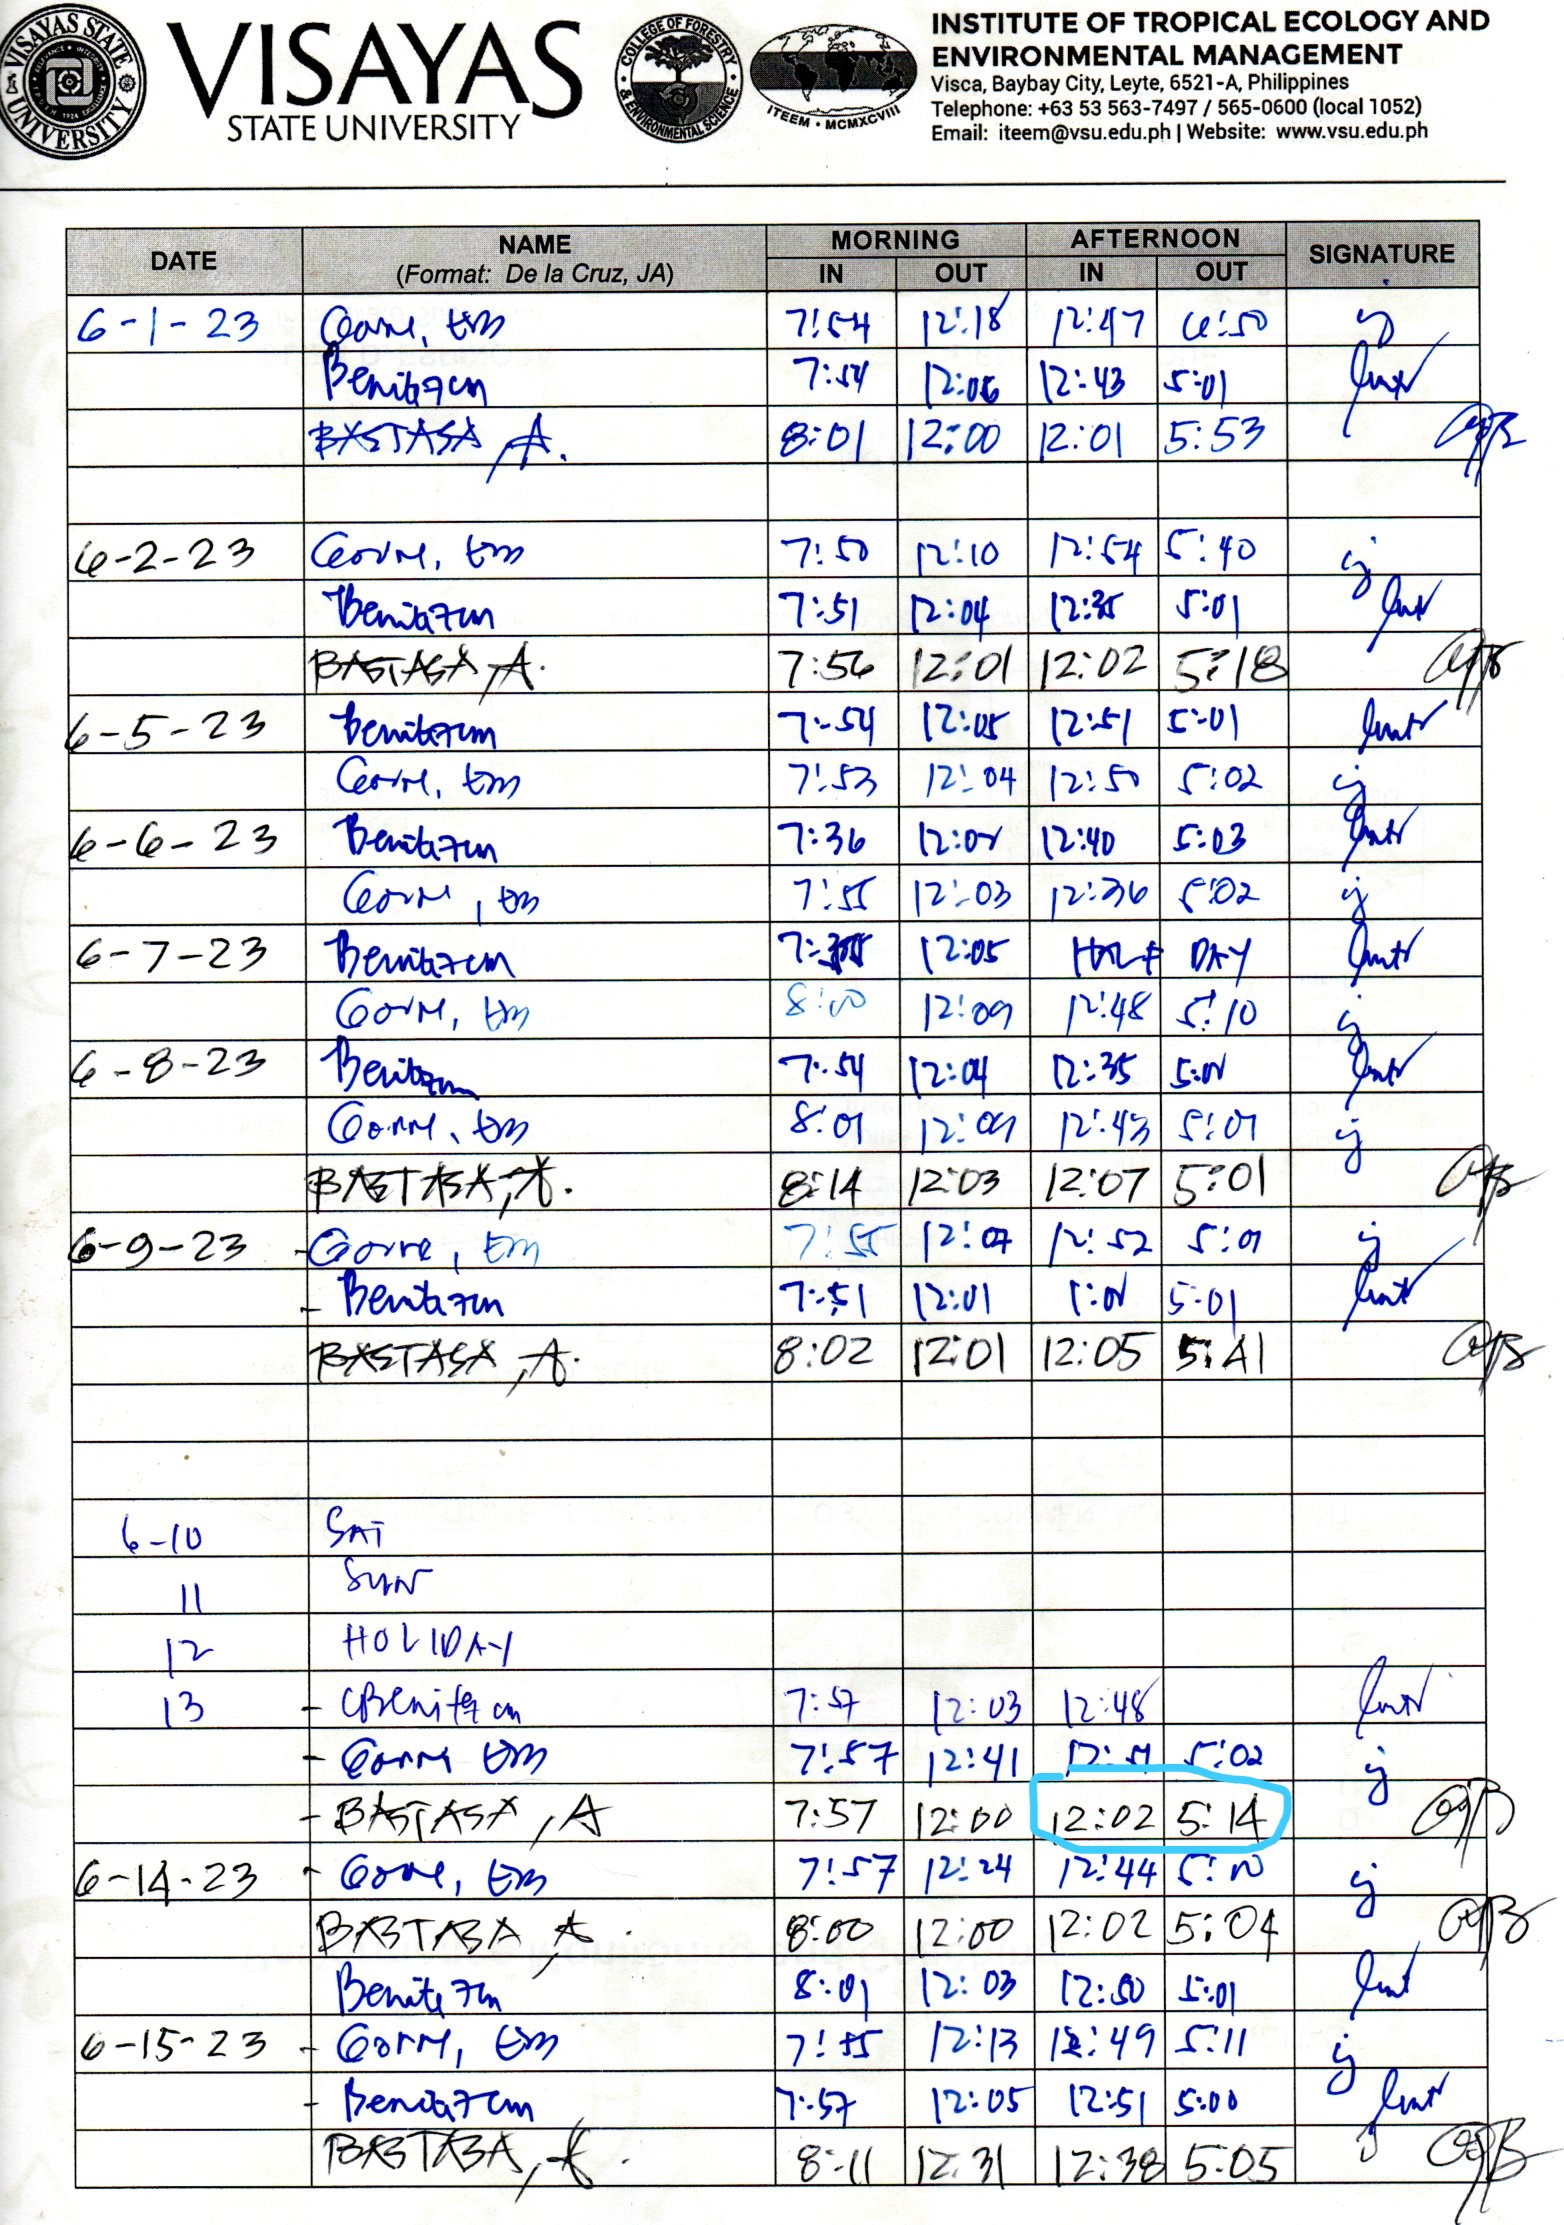 VISAYAS STATE UNIVERSITY
VISAYAS
STATE UNIVERSITY
COLLEGE OF FORESTRY & ENVIRONMENTAL SCIENCE
ITEEM • MCMXCVIII
INSTITUTE OF TROPICAL ECOLOGY AND
ENVIRONMENTAL MANAGEMENT
Visca, Baybay City, Leyte, 6521-A, Philippines
Telephone: +63 53 563-7497 / 565-0600 (local 1052)
Email: iteem@vsu.edu.ph | Website: www.vsu.edu.ph
DATE NAME MORNING AFTERNOON SIGNATURE
(Format: De la Cruz, JA) IN OUT IN OUT
6-1-23 Gorre, EM 7:54 12:18 12:47 6:50
Benitez cm 7:54 12:06 12:43 5:01
BASTASA, A. 8:01 12:00 12:01 5:53
6-2-23 Gorre, EM 7:50 12:10 12:54 5:40
Benitez cm 7:51 12:04 12:35 5:01
BASTASA, A. 7:56 12:01 12:02 5:18
6-5-23 Benitez cm 7:54 12:05 12:51 5:01
Gorre, EM 7:53 12:04 12:50 5:02
6-6-23 Benitez cm 7:36 12:40 5:03
Gorre, EM 7:55 12:03 12:36 5:02
6-7-23 Benitez cm 12:05 HALF DAY
Gorre, EM 8:00 12:09 12:48 5:10
6-8-23 Benitez cm 7:54 12:04 12:35
Gorre, EM 8:01 12:09 12:43 5:01
BASTASA, A. 8:14 12:03 12:07 5:01
6-9-23 - Gorre, EM 7:55 12:07 12:52 5:01
- Benitez cm 7:51 12:01 5:01
BASTASA, A. 8:02 12:01 12:05 5:41
6-10 SAT
11 SUN
12 HOLIDAY
13 - Benitez cm 7:57 12:03 12:48
- Gorre EM 7:57 12:41 12:51 5:02
- BASTASA, A 7:57 12:00 12:02 5:14
6-14-23 - Gorre, EM 7:57 12:24 12:44 5:10
BASTASA, A. 8:00 12:00 12:02 5:04
Benitez cm 8:01 12:03 12:50 5:01
6-15-23 - Gorre, EM 7:55 12:13 12:49 5:11
- Benitez cm 7:57 12:05 12:51 5:00
BASTASA, A. 8:11 12:31 12:38 5:05